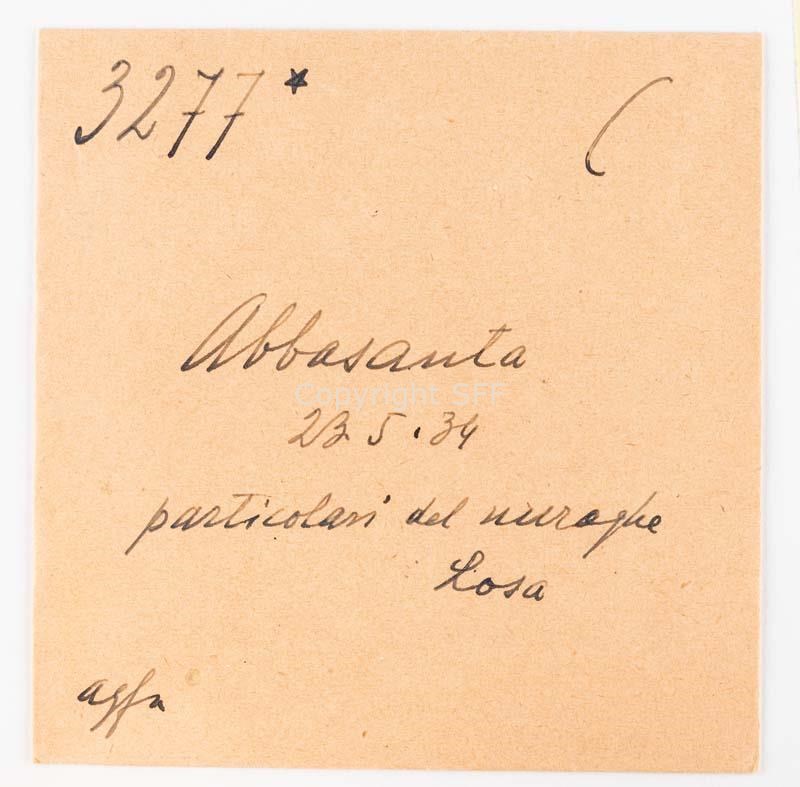 3277*
(
Abbasanta
Copyright SFF
23.5.34
particolari del nuraghe
Losa
agfa